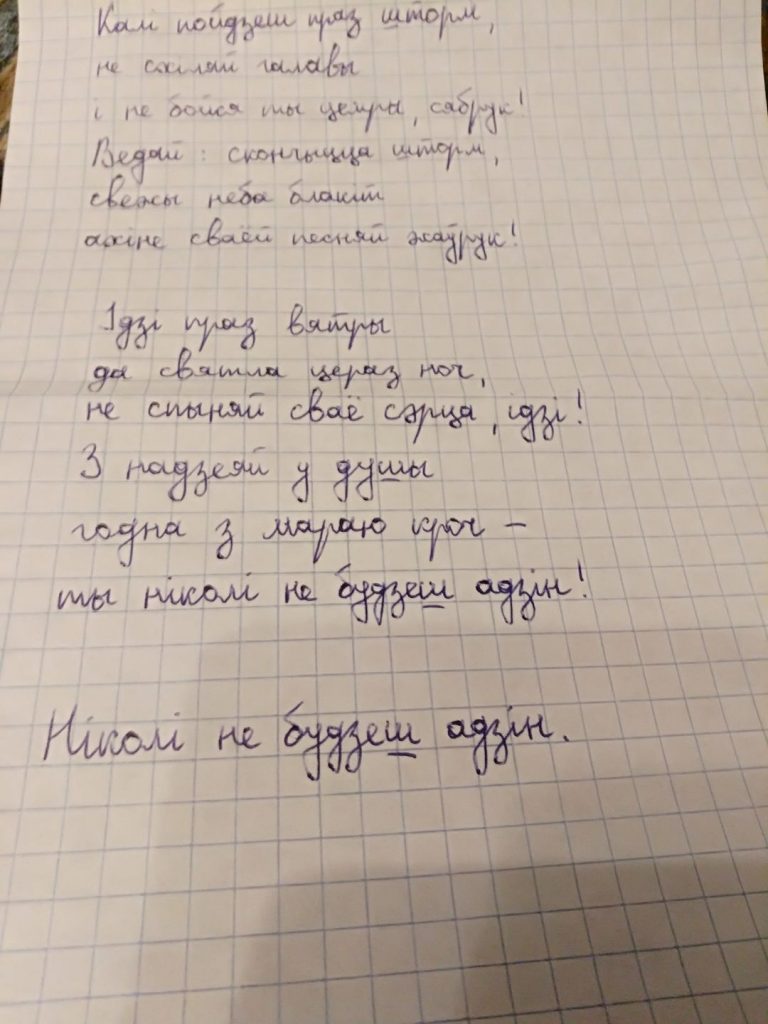 Калі пойдзеш праз шторм,
не схіляй галавы
і не бойся ты цемры, сябрук!
Ведай: скончыцца шторм,
свежы неба блакіт
ахіне сваёй песняй жаўрук!
Ідзі праз вятры
да святла цераз ноч,
не спыняй сваё сэрца, ідзі!
З надзеяй у душы
годна з мараю кроч –
ты ніколі не будзеш адзін!
Ніколі не будзеш адзін.